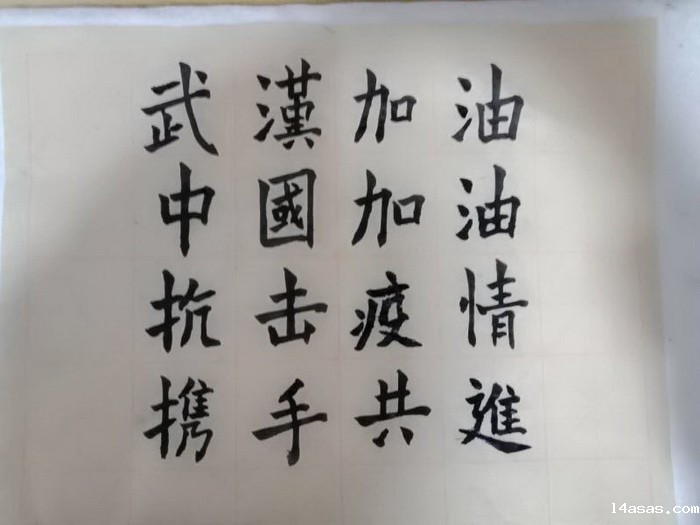 武漢加油
中國加油
抗击疫情
携手共進
14asas.com